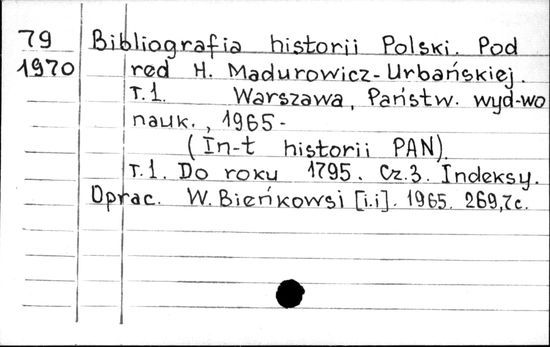 79 Bibliografia historii Polski. Pod
1970 red H. Madurowicz-Urbańskiej.
T.1. Warszawa, Państw. wyd-wo
nauk., 1965-
(In-t historii PAN).
T.1. Do roku 1795. Cz.3. Indeksy.
Oprac. W. Bieńkowsi [i.i]. 1965. 269,7c.